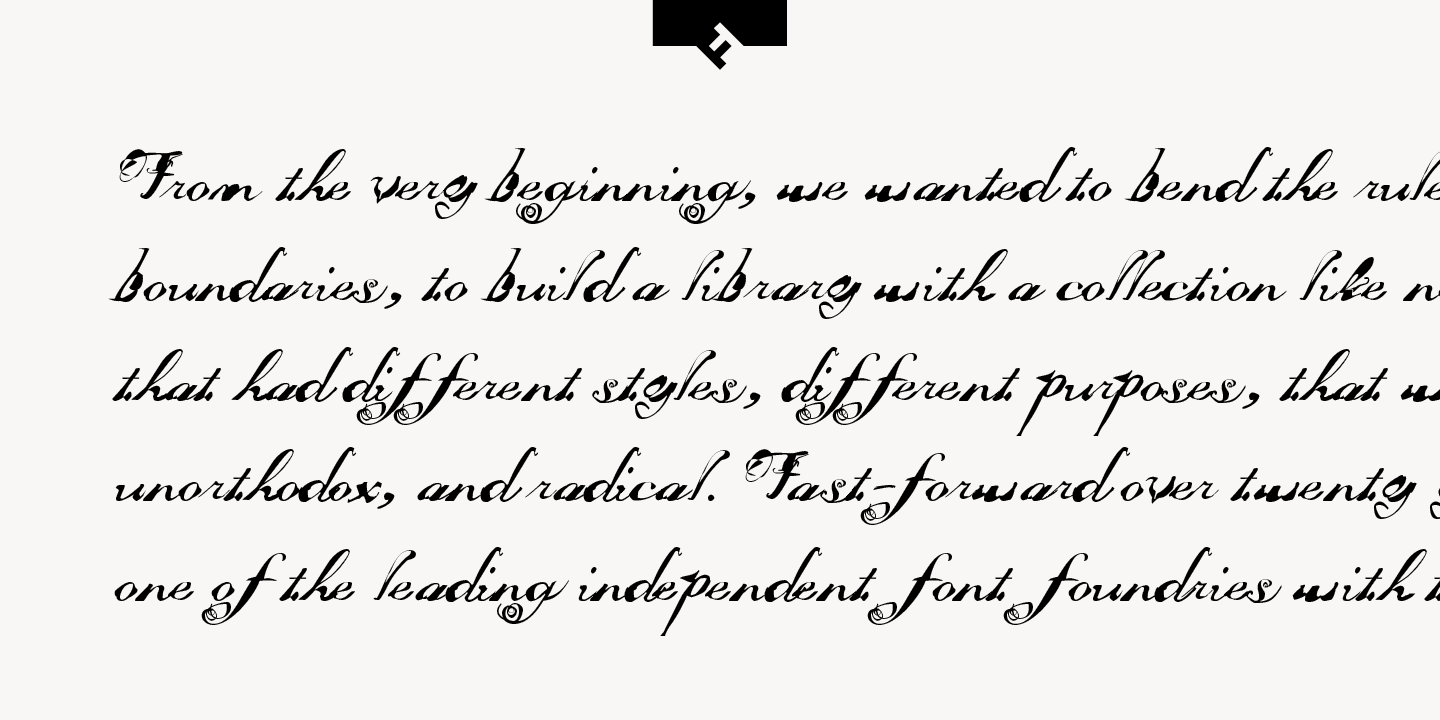 From the very beginning, we wanted to bend the rule
boundaries, to build a library with a collection like n
that had different styles, different purposes, that w
unorthodox, and radical. Fast-forward over twenty
one of the leading independent font foundries with t